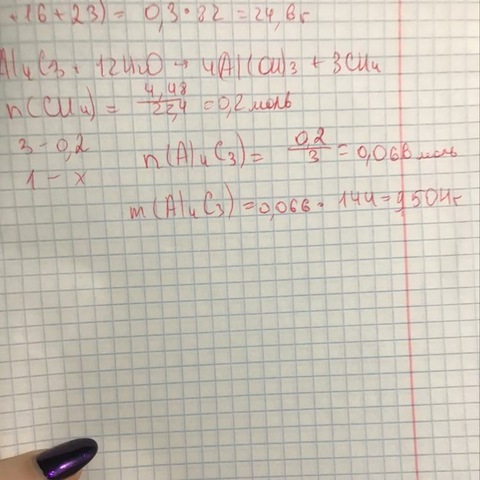 +16+23) = 0,3·82 = 24,6г
Al4C3 + 12H2O → 4Al(OH)3 + 3CH4
n(CH4) = 4,48/22,4 = 0,2 моль
3 - 0,2 n(Al4C3) = 0,2/3 = 0,066 моль
1 - x
m(Al4C3) = 0,066 · 144 = 9,504г